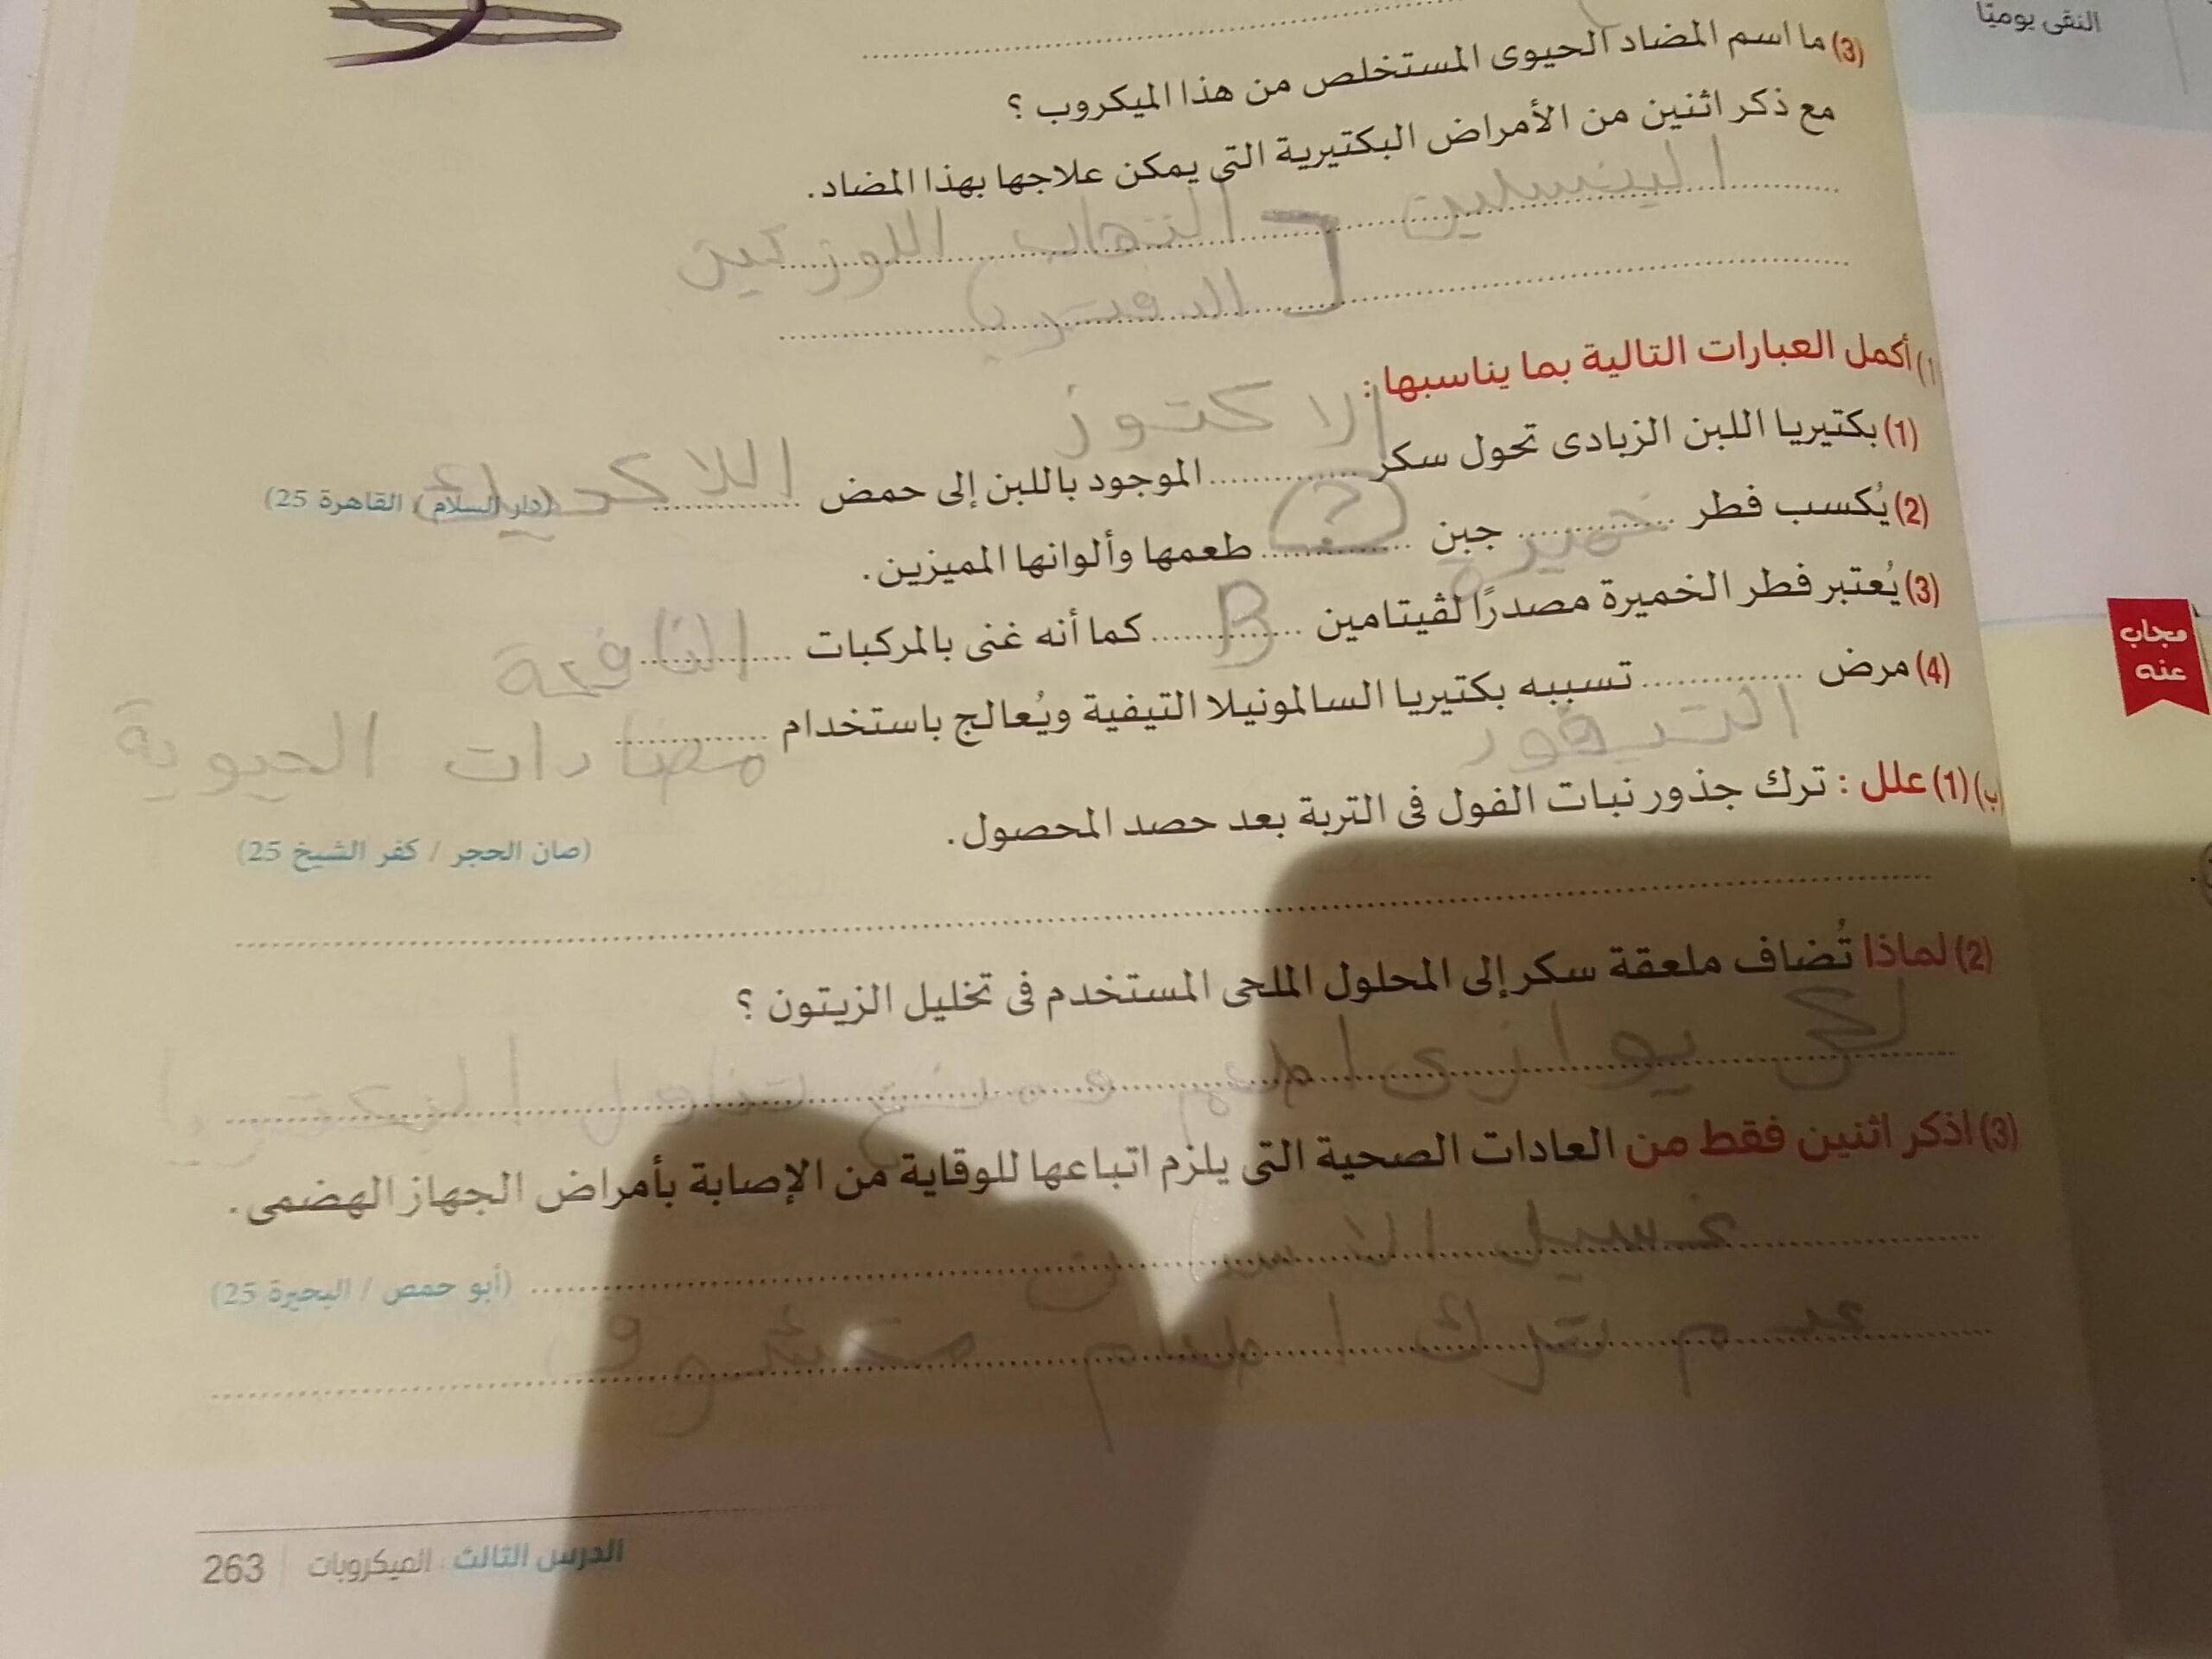 النقى يوميًا
(3) ما اسم المضاد الحيوى المستخلص من هذا الميكروب ؟
مع ذكر اثنين من الأمراض البكتيرية التى يمكن علاجها بهذا المضاد.
البنسلين التهاب اللوزتين
الدفتريا
أكمل العبارات التالية بما يناسبها :
الاكتوز
(1) بكتيريا اللبن الزبادى تحول سكر .............. الموجود باللبن إلى حمض .............. اللاكتيك (دار السلام / القاهرة 25)
(2) يُكسب فطر .............. خميرة جبن .............. ? طعمها وألوانها المميزين.
(3) يُعتبر فطر الخميرة مصدرًا لڤيتامين .............. B كما أنه غنى بالمركبات .............. النافعة
(4) مرض .............. التيفود تسببه بكتيريا السالمونيلا التيفية ويُعالج باستخدام .............. مضادات الحيوية
(ب) (1) علل : ترك جذور نبات الفول فى التربة بعد حصد المحصول.
(صان الحجر / كفر الشيخ 25)
(2) لماذا تُضاف ملعقة سكر إلى المحلول الملحى المستخدم فى تخليل الزيتون ؟
لكى يوازى
(3) اذكر اثنين فقط من العادات الصحية التى يلزم اتباعها للوقاية من الإصابة بأمراض الجهاز الهضمى.
غسيل الاسنان
(أبو حمص / البحيرة 25)
عدم ترك مكشوف
مجاب
عنه
الدرس الثالث : الميكروبات | 263